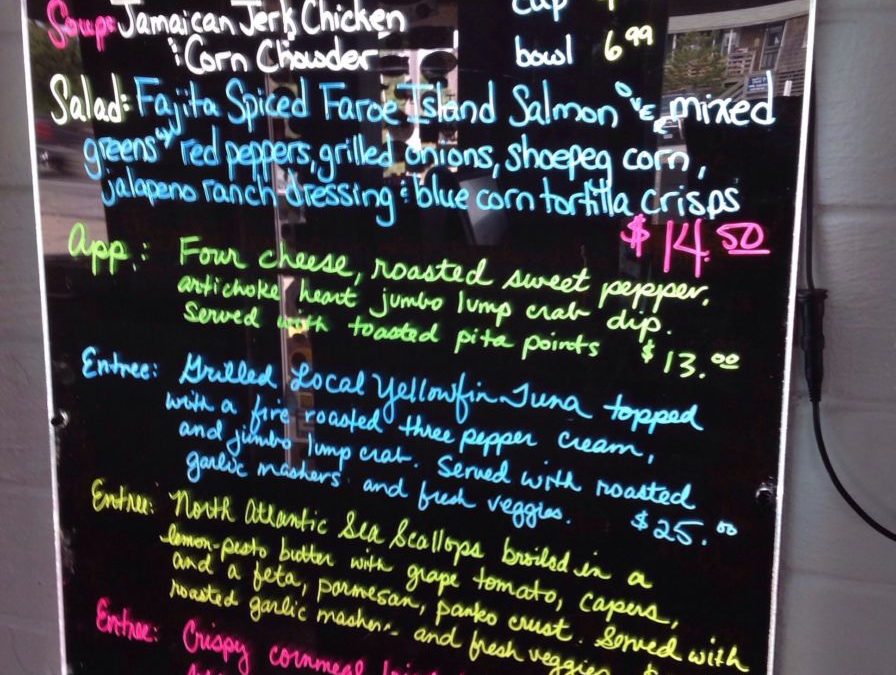 Soup: Jamaican Jerk Chicken cup
& Corn Chowder bowl 6.99
Salad: Fajita Spiced Faroe Island Salmon over mixed
greens w/ red peppers, grilled onions, shoepeg corn,
jalapeno ranch dressing & blue corn tortilla crisps
$14.50
App.: Four cheese, roasted sweet pepper,
artichoke heart jumbo lump crab dip.
Served with toasted pita points $13.00
Entree: Grilled Local Yellowfin Tuna topped
with a fire roasted three pepper cream,
and jumbo lump crab. Served with roasted
garlic mashers and fresh veggies. $25.00
Entree: North Atlantic Sea Scallops broiled in a
lemon-pesto butter with grape tomato, capers,
and a feta, parmesan, panko crust. Served with
roasted garlic mashers and fresh veggies
Entree: Crispy cornmeal